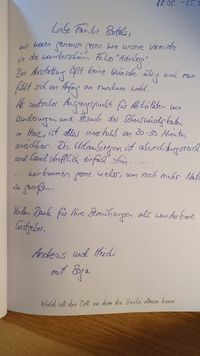 Liebe Familie
wir waren genauso gerne wie unsere
in der wunderschönen Fewo
Die Ausstattung lässt keine Wünsche übrig und man
fühlt sich von Anfang an rundum wohl.
Als zentraler Ausgangspunkt für Aktivitäten wie
Wanderungen und Besuch der Sehenswürdigkeiten
im Harz, ist alles innerhalb von 20-30 Minuten
erreichbar. Die Urlaubsregion ist abwechslungsreich
und landschaftlich einfach schön ......
.... wir kommen gerne wieder, um noch mehr
zu genießen.
Vielen Dank für Ihre Bemühungen als wunderbare
Gastgeber.
Andreas und
mit
Wald ist der Ort, an dem die Seele atmen kann